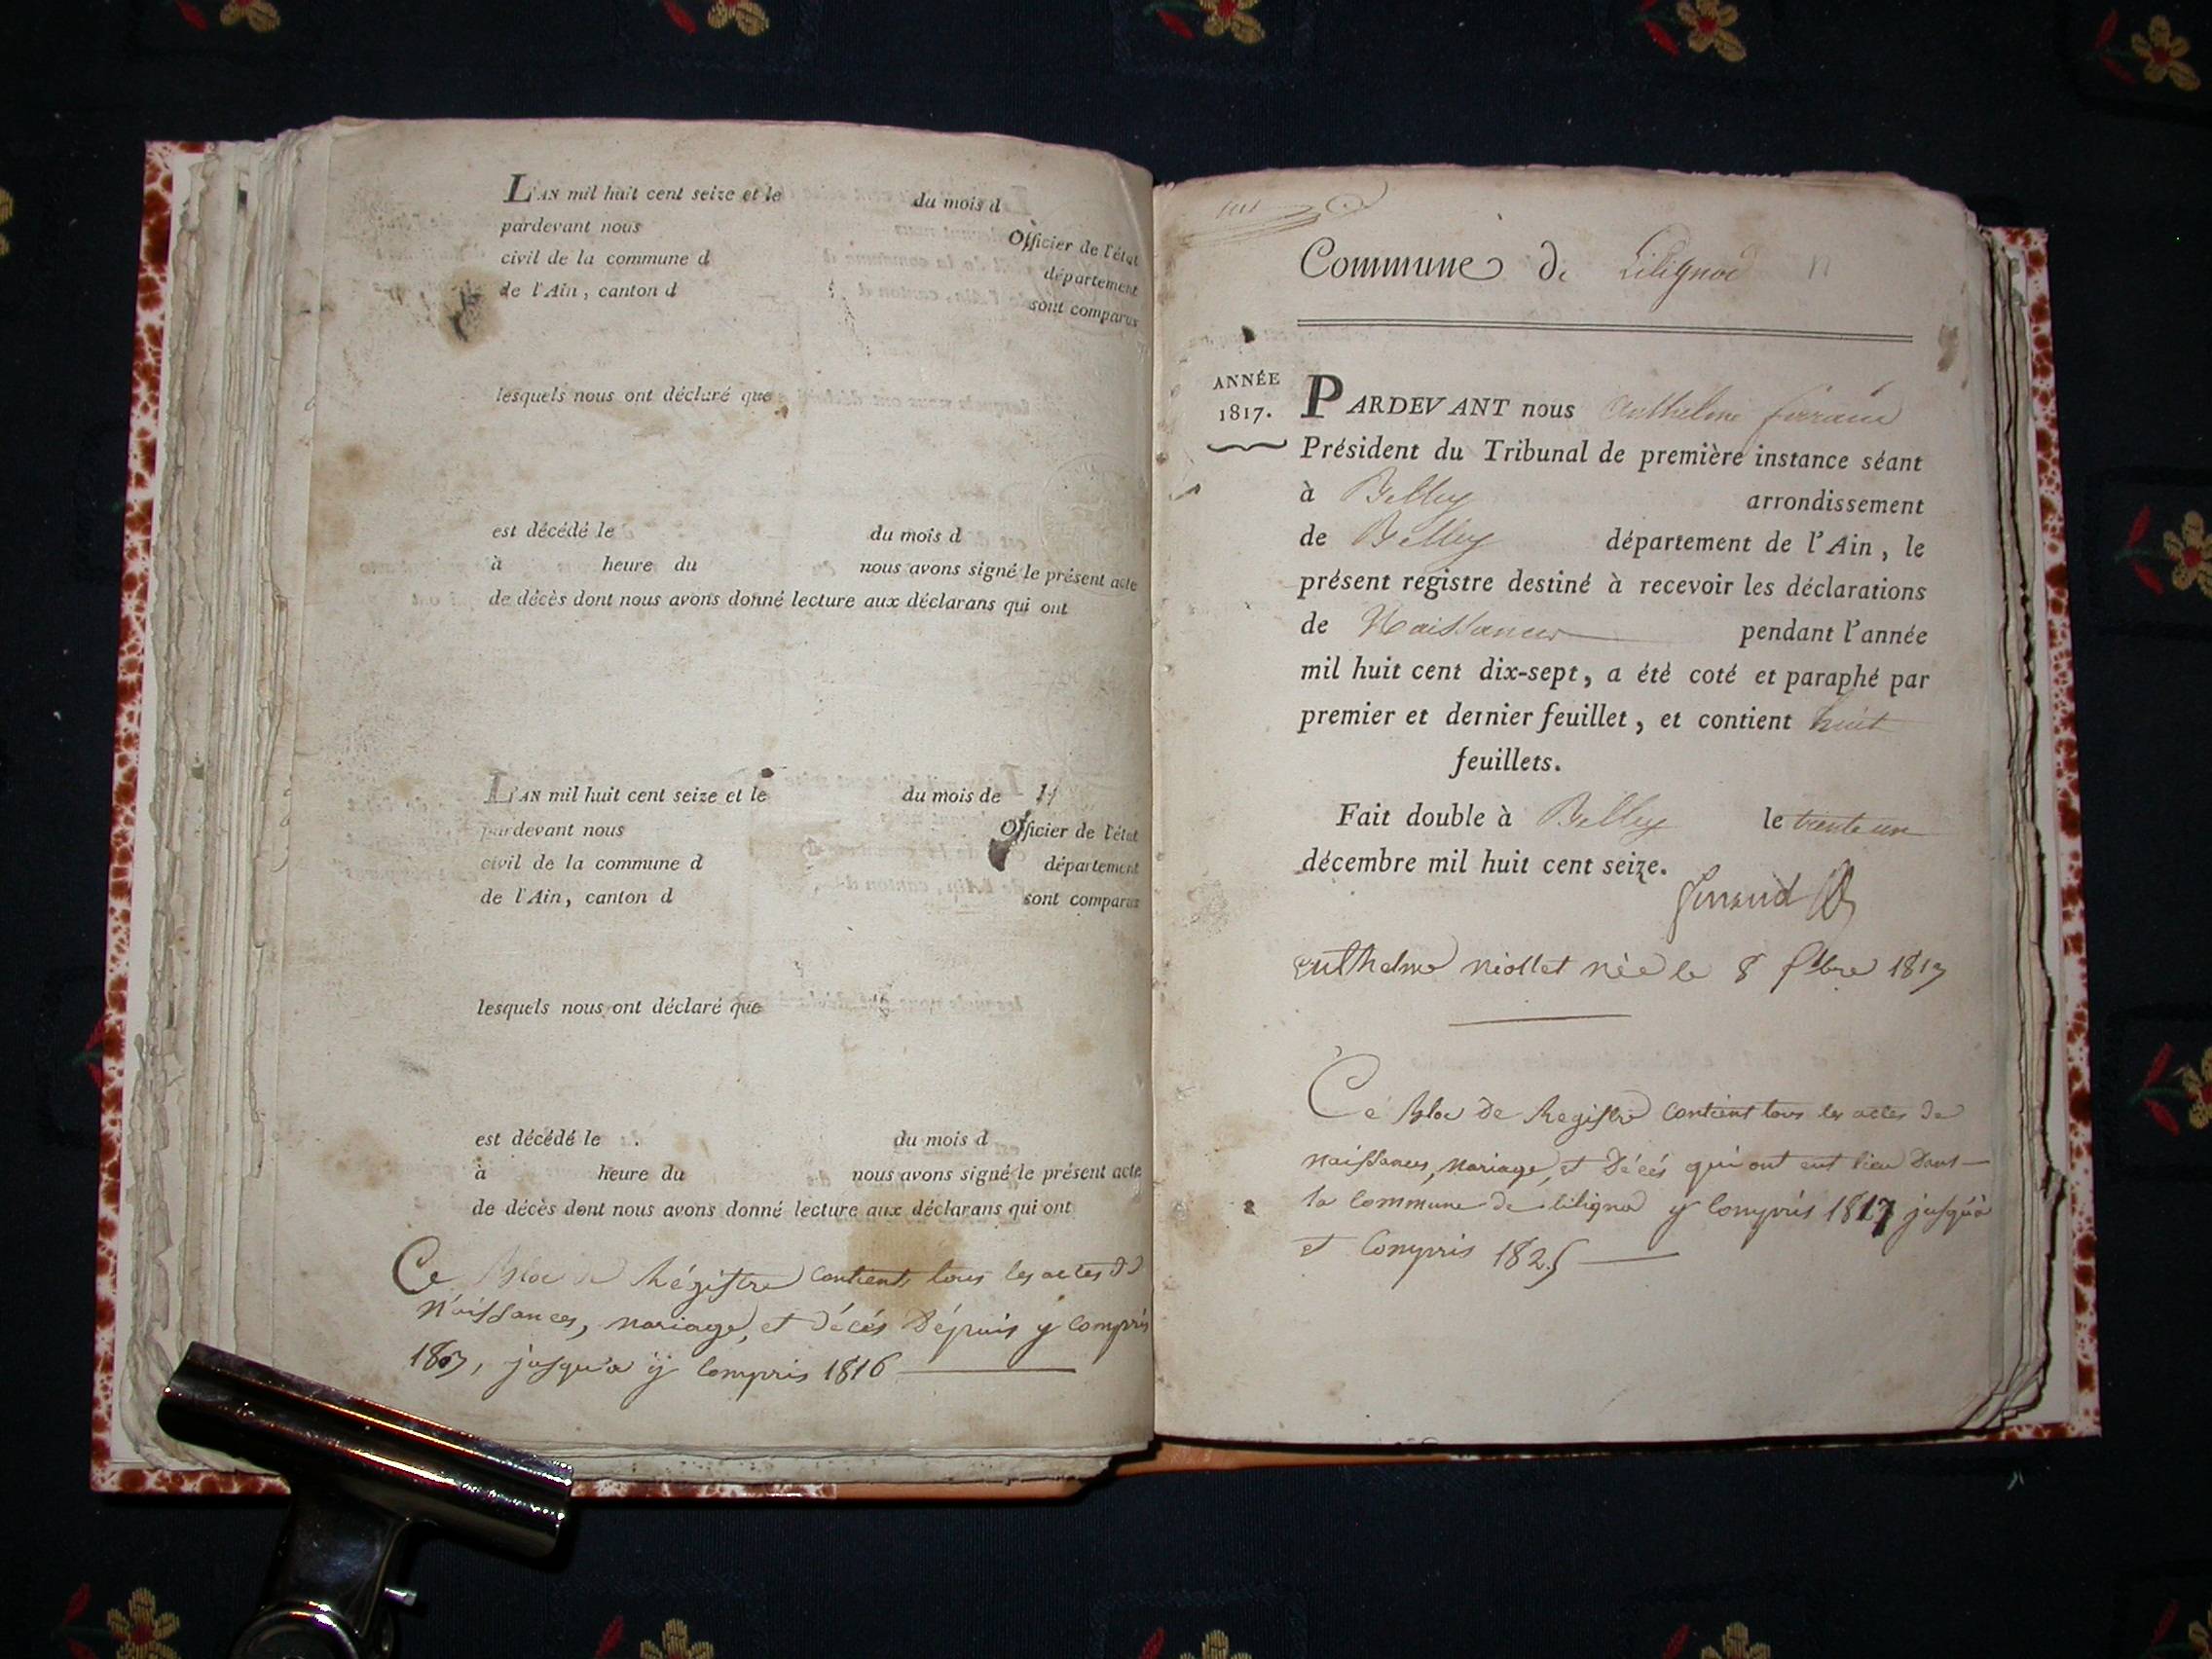 L'AN mil huit cent seize et le du mois d
pardevant nous Officier de l'état
civil de la commune d département
de l'Ain, canton d sont comparus
lesquels nous ont déclaré que
est décédé le du mois d
à heure du nous avons signé le présent acte
de décès dont nous avons donné lecture aux déclarans qui ont
L'AN mil huit cent seize et le du mois de
pardevant nous Officier de l'état
civil de la commune d département
de l'Ain, canton d sont comparus
lesquels nous ont déclaré que
est décédé le du mois d
à heure du nous avons signé le présent acte
de décès dont nous avons donné lecture aux déclarans qui ont
Ce Bloc de Régistre contient tous les actes de
Naissances, mariage, et décés Dépuis y compris
1807, jusqu'a ÿ compris 1816
Commune de Lilignod
ANNÉE
1817.
PARDEVANT nous Anthelme ferrand
Président du Tribunal de première instance séant
à Belley arrondissement
de Belley département de l'Ain, le
présent registre destiné à recevoir les déclarations
de Naissances pendant l'année
mil huit cent dix-sept, a été coté et paraphé par
premier et dernier feuillet, et contient huit
feuillets.
Fait double à Belley le trente un
décembre mil huit cent seize.
ferrand
Anthelme Niollet née le 8 1817
Ce Bloc de Registre contient tous les actes de
naissances, mariage, et décés qui ont eut lieu dans
la commune de lilignod y compris 1817 jusqu'à
et compris 1825